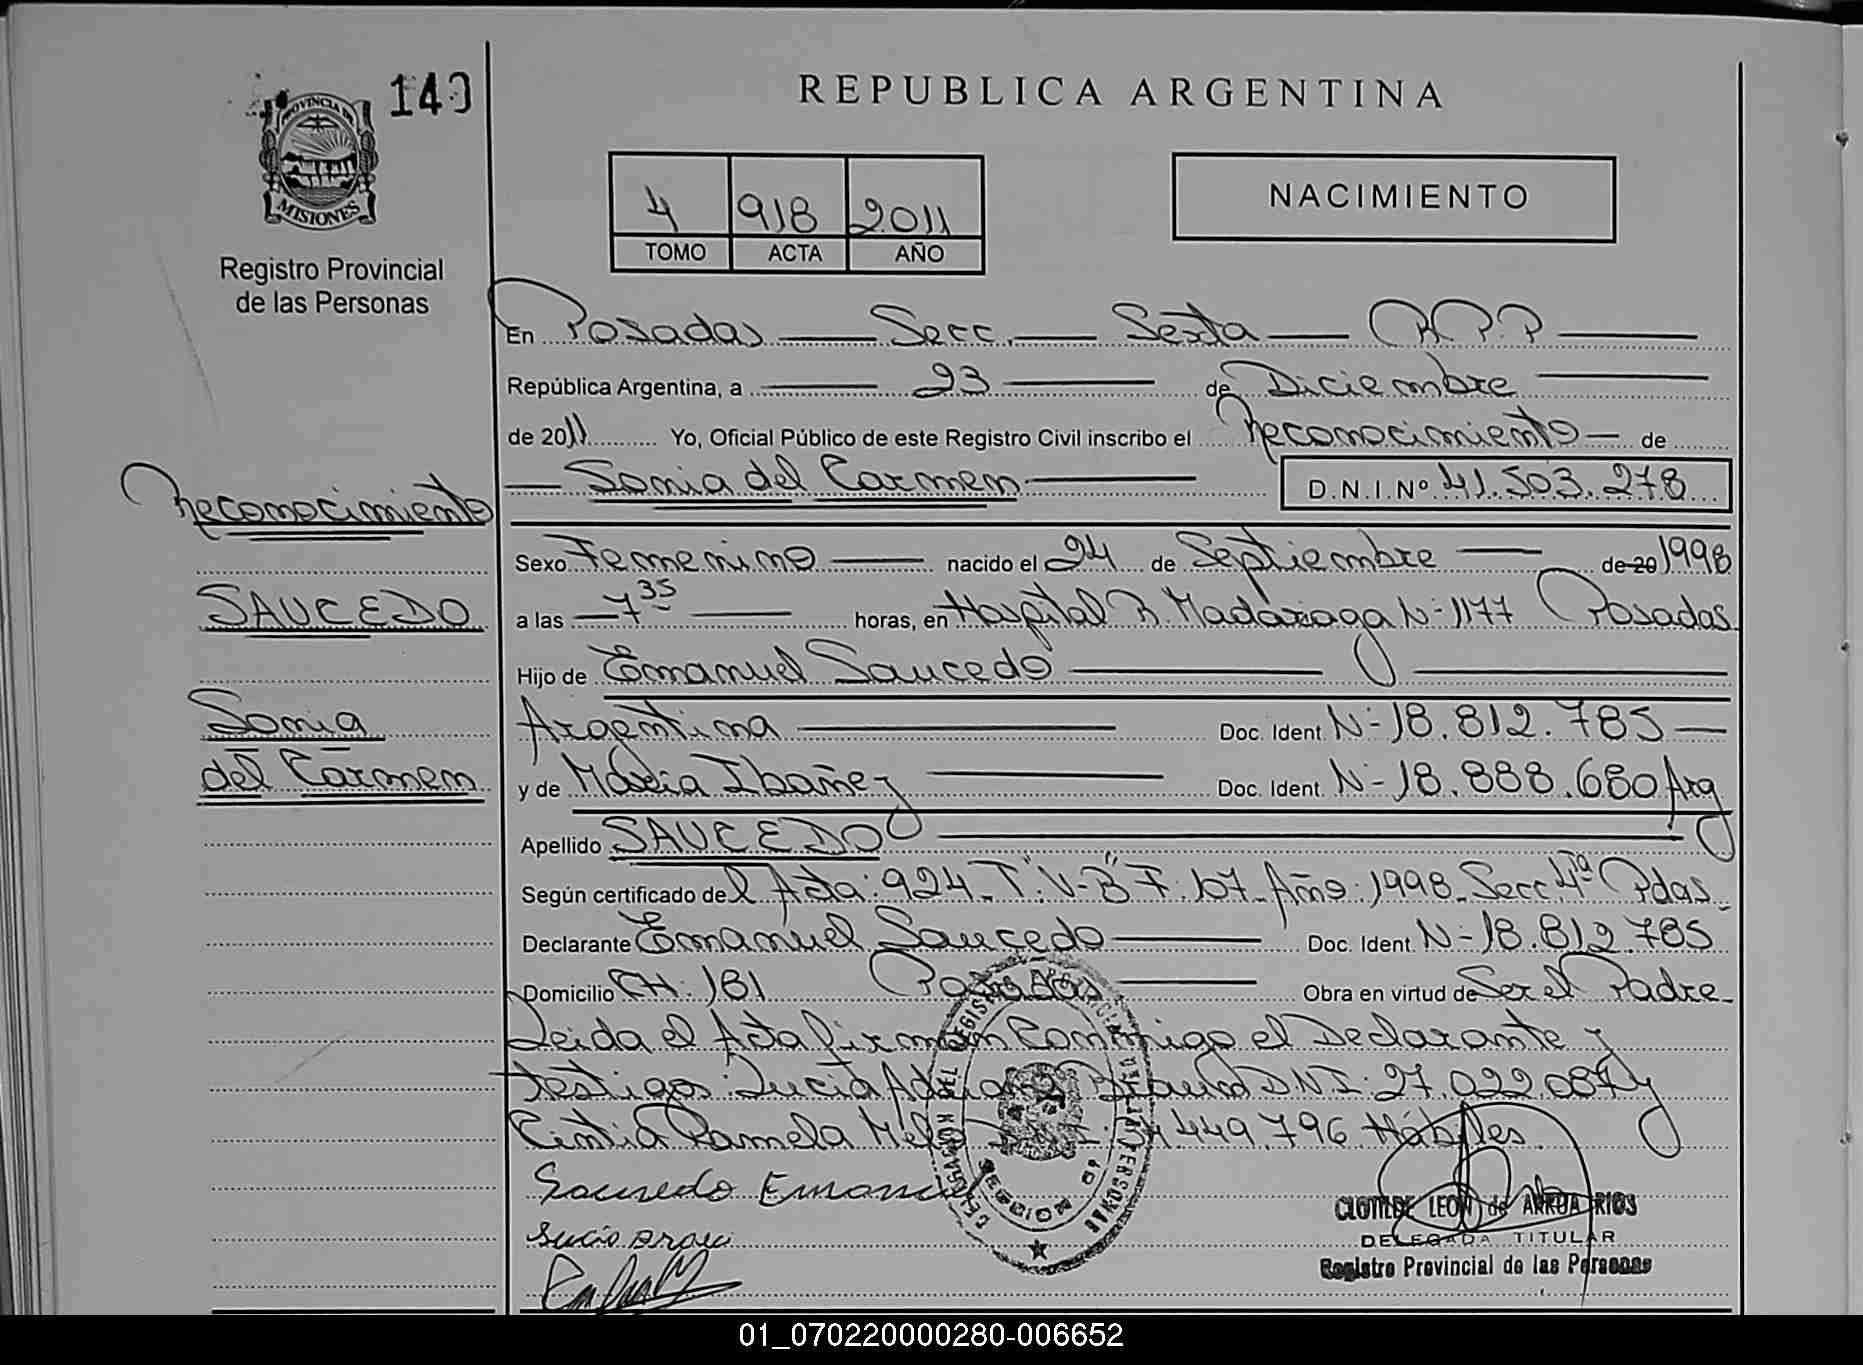 149
PROVINCIA DE
MISIONES
Registro Provincial
de las Personas
REPUBLICA ARGENTINA
4 918 2011
TOMO ACTA AÑO
NACIMIENTO
En Posadas Secc. Sexta R.P.P
República Argentina, a 23 de Diciembre
de 2011 Yo, Oficial Público de este Registro Civil inscribo el Reconocimiento de
Sonia del Carmen D.N.I.Nº 41.503.278
Reconocimiento
SAUCEDO
Sonia
del Carmen
Sexo Femenino nacido el 24 de Septiembre de 20 1998
a las 7 35 horas, en Hospital R. Madariaga N-1177 Posadas
Hijo de Emanuel Saucedo
Argentina Doc. Ident N-18.812.785
y de Maria Ibañez Doc. Ident. N-18.888.680 Arg
Apellido SAUCEDO
Según certificado del Acta: 924- T: "V-B" F: 107- Año: 1998- Secc 4ta Pdas-
Declarante Emanuel Saucedo Doc. Ident. N-18.812.785
Domicilio CH: 181 Posadas Obra en virtud de Ser el Padre-
Leida el Acta firman Conmigo el Declarante y
testigos: Lucia DNI: 27.022.087 y
Cintia Pamela 449.796 Hábiles.
Saucedo Emanuel
CLOTILDE LEON de ARRUA RIOS
DELEGADA TITULAR
Registro Provincial de las Personas
01_070220000280-006652